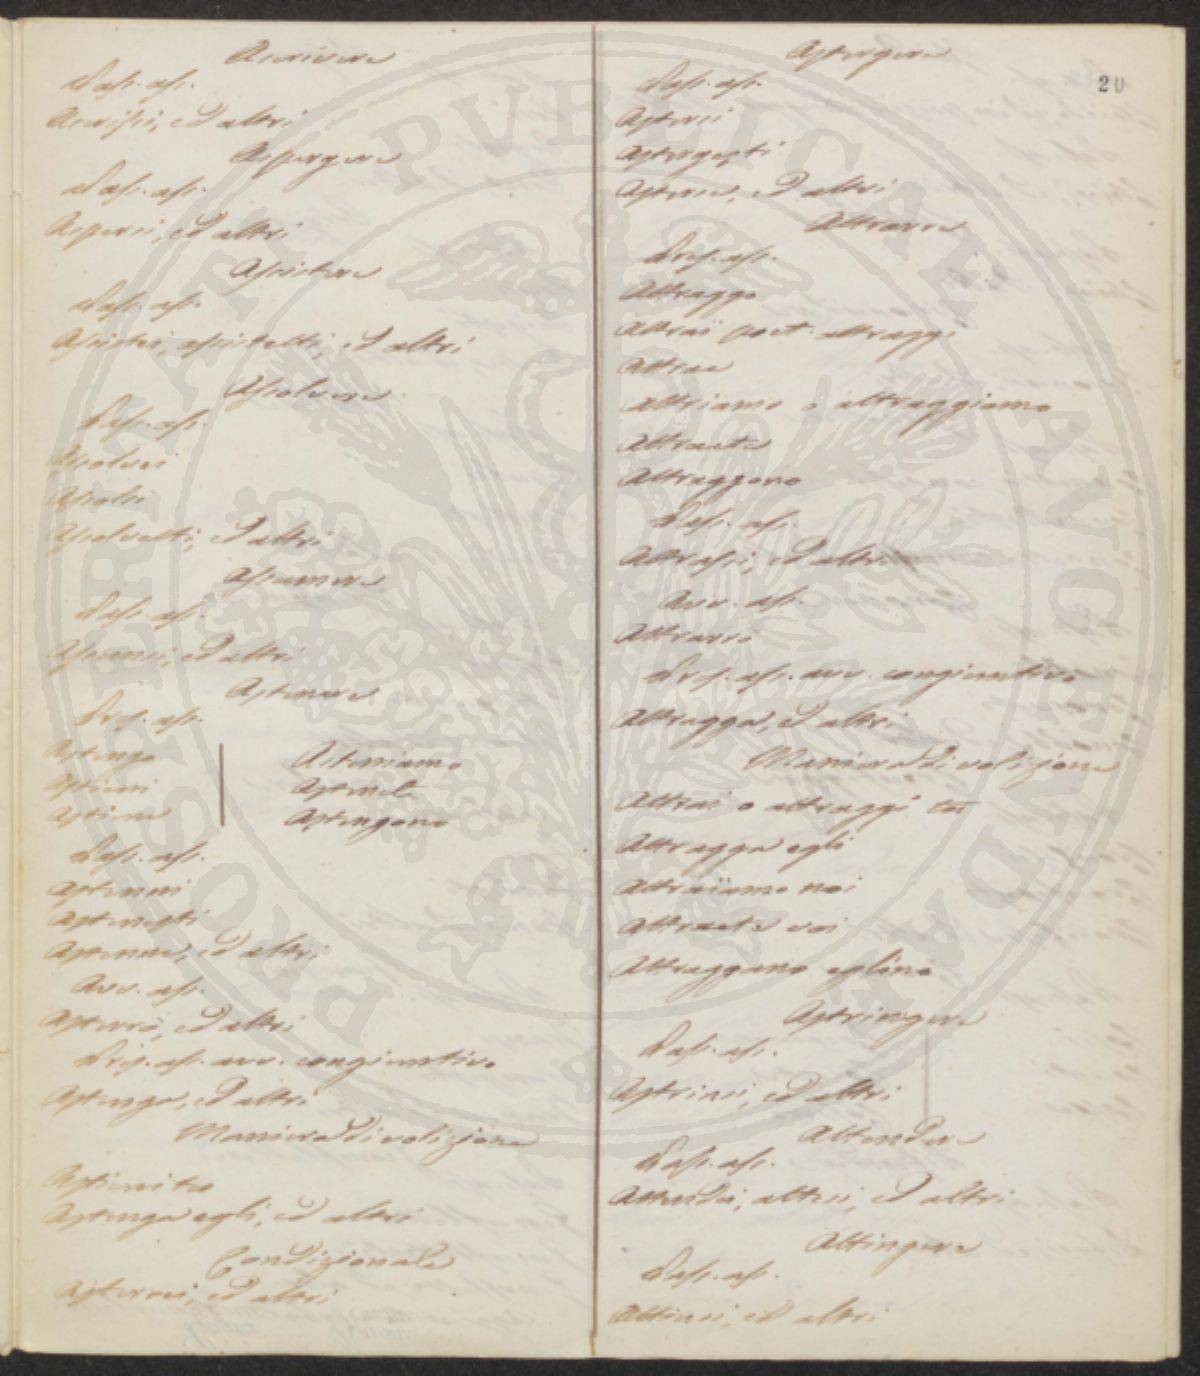 Ascrivere
Pass. ass.
Ascrissi, ed altri
Aspergere
Pass. ass.
Aspersi, ed altri
Assistere
Pass. ass.
Assistei, assistetti, ed altri
Assolvere
Pass. ass.
Assolvei
Assolsi
Assolvetti, ed altri
Assumere
Pass. ass.
Assunsi, ed altri
Astenere
Pres. ass.
Astengo
Astieni
Astiene
Asteniamo
Astenete
Astengono
Pass. ass.
Astenni
Astenesti
Astenne, ed altri
Avv. ass.
Asterrò, ed altri
Pres. ass. avv. congiuntivo
Astenga, ed altri
Maniera di volizione
Astieni tu
Astenga egli, ed altri
Condizionale
Asterrei, ed altri
20
Astergere
Pass. ass.
Astersi
Astergesti
Asterse, ed altri
Attrarre
Pres. ass.
Attraggo
Attrai poet. attraggi
Attrae
Attriamo o attraggiamo
Attraete
Attraggono
Pass. ass.
Attrassi, ed altri
Avv. ass.
Attrarrò
Pres. ass. avv. congiuntivo
Attragga, ed altri
Maniera di volizione
Attrai o attraggi tu
Attragga egli
Attraiamo noi
Attraete voi
Attraggano eglino
Astringere
Pass. ass.
Astrinsi, ed altri
Attendere
Pass. ass.
Attendei, attesi, ed altri
Attingere
Pass. ass.
Attinsi, ed altri
PROSPERITATI PVBLICAE AVGENDAE